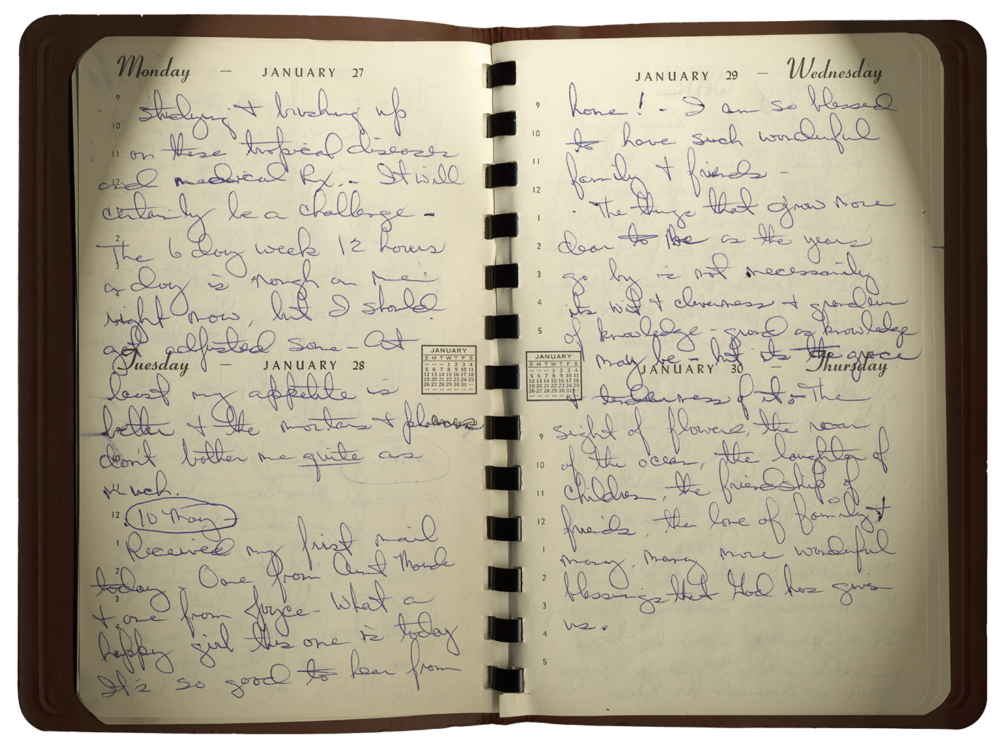 Monday — JANUARY 27
studying + brushing up
on these tropical diseases
and medical Rx.. It will
certainly be a challenge -
The 6 day week 12 hours
a day is rough on me
right now, but I should
get adjusted some - At
Tuesday — JANUARY 28
least my appetite is
better + the mortars + planes
don't bother me quite as
much.
10 May -
Received my first mail
today - One from Aunt Maude
+ one from Joyce - What a
happy girl this one is today
It's so good to hear from
JANUARY 29 — Wednesday
home! - I am so blessed
to have such wonderful
family + friends -
The things that grow more
dear to me as the years
go by is not necessarily
its wit + cleverness + grandeur
of knowledge - good as knowledge
may be - but its the grace
JANUARY 30 — Thursday
+ tenderness of it - The
sight of flowers, the roar
of the ocean, the laughter of
children, the friendship of
friends, the love of family +
many, many more wonderful
blessings that God has given
us.